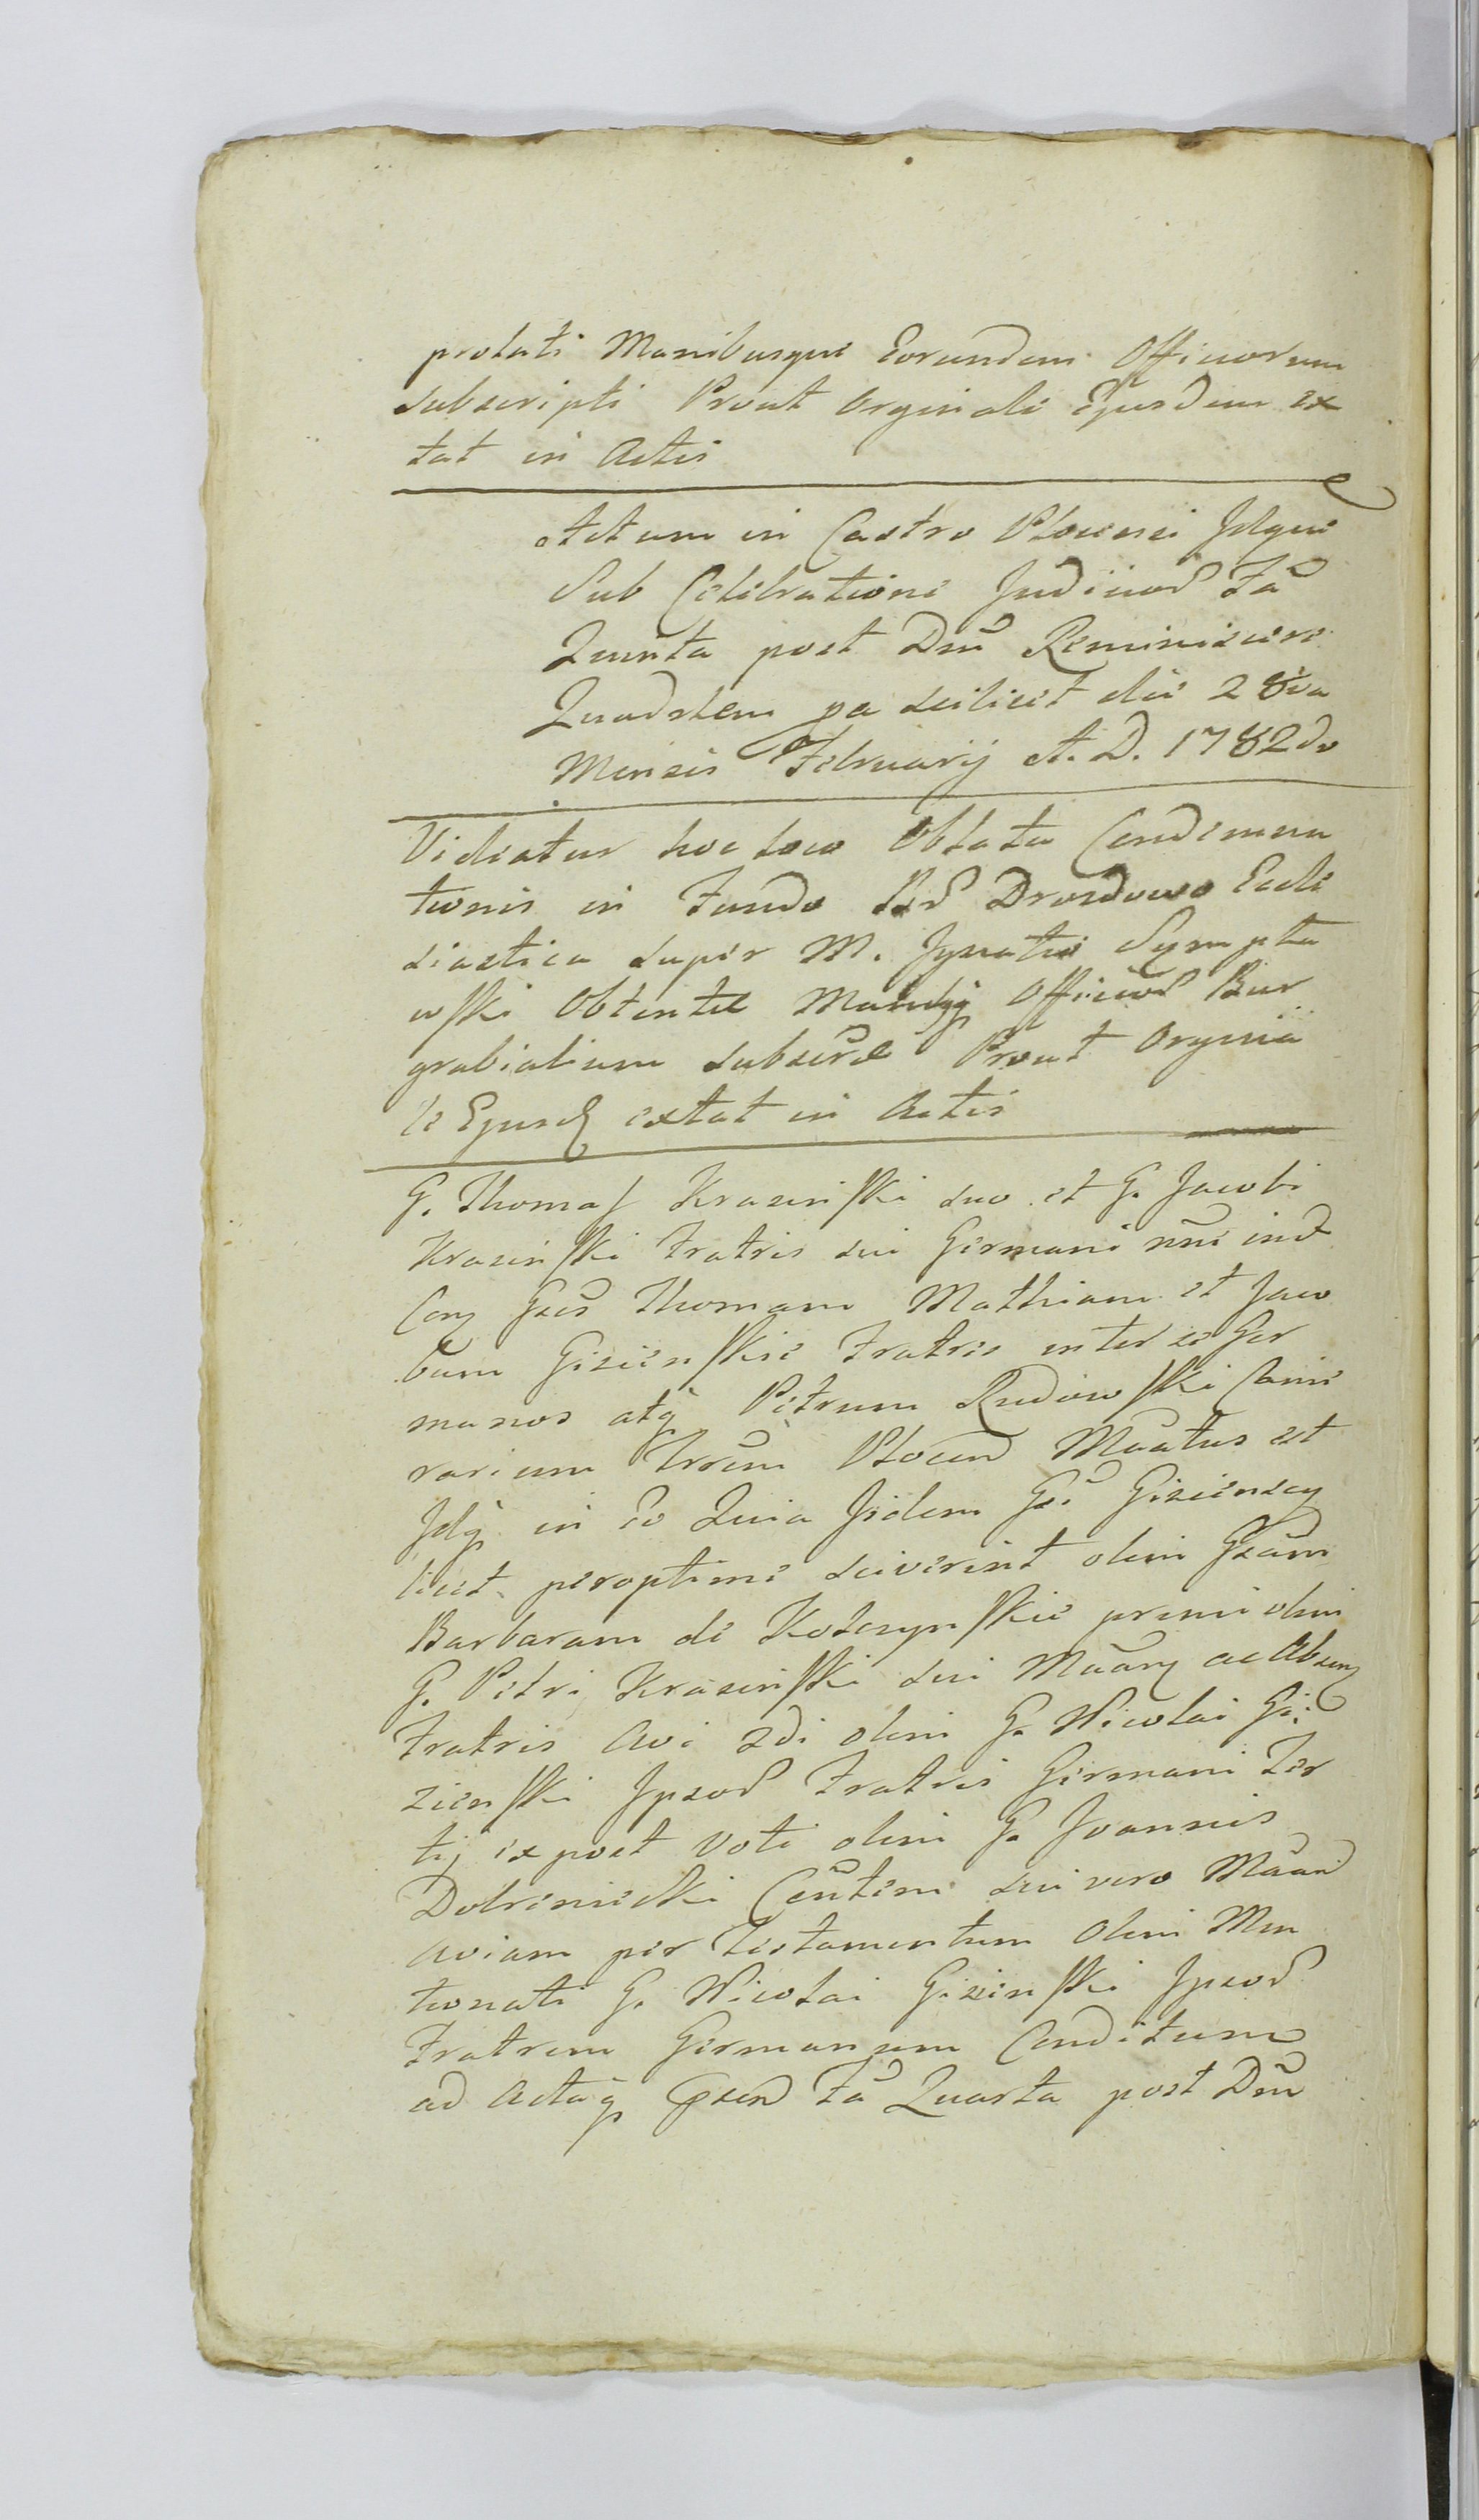 prolati Manibusque Eorundem Officiorum
subscripti Prout Orginale Ejusdem ex
tat in Actis
Actum in Castro Plocensi Idque
Sub Celebratione Judiciorũ Fã
Quinta post Dnũ Reminiscere
Quadrlem pa scilicet die 28va
Mensis Februarij A. D. 1782do
Videatur hoc loco Oblata Condemna
tionis in Fundo Drozdowo Eccle
siastica super M. Ignatio Sympła
wski Obtentæ Officiorũ Bur
grabialium subscræ Prout Orygina
le Ejusd extat in Actis
G. Thomas Krasinski suo et G. Jacobi
Krasinski Fratris sui Germani nõni
Gsos Thomam Mathiam et Jaco
bum Gizienskie Fratres inter se Ger
manos atq Petrum Rudowski Came
rarium Trrũm Plocen Mãatus est
Idq in eo Quia Iidem Gsi Gizienscy
licet peroptime sciverint olim Gsãm
Barbaram de Kolczynskie primi olim
G. Petri Krasinski sui
Fratris Avi 2di olim G. Nicolai Gi
zienski Ipsorũ Fratris Germani Ter
tij expost Voti olim G. Joannis
Dobrenieski Cõntem sui vero
Aviam per Testamentum Olim Men
tionati G. Nicolai Gizinski Ipsorũ
Fratrem Germanum Conditum
ad Actaq Fã Quarta post Dnũ